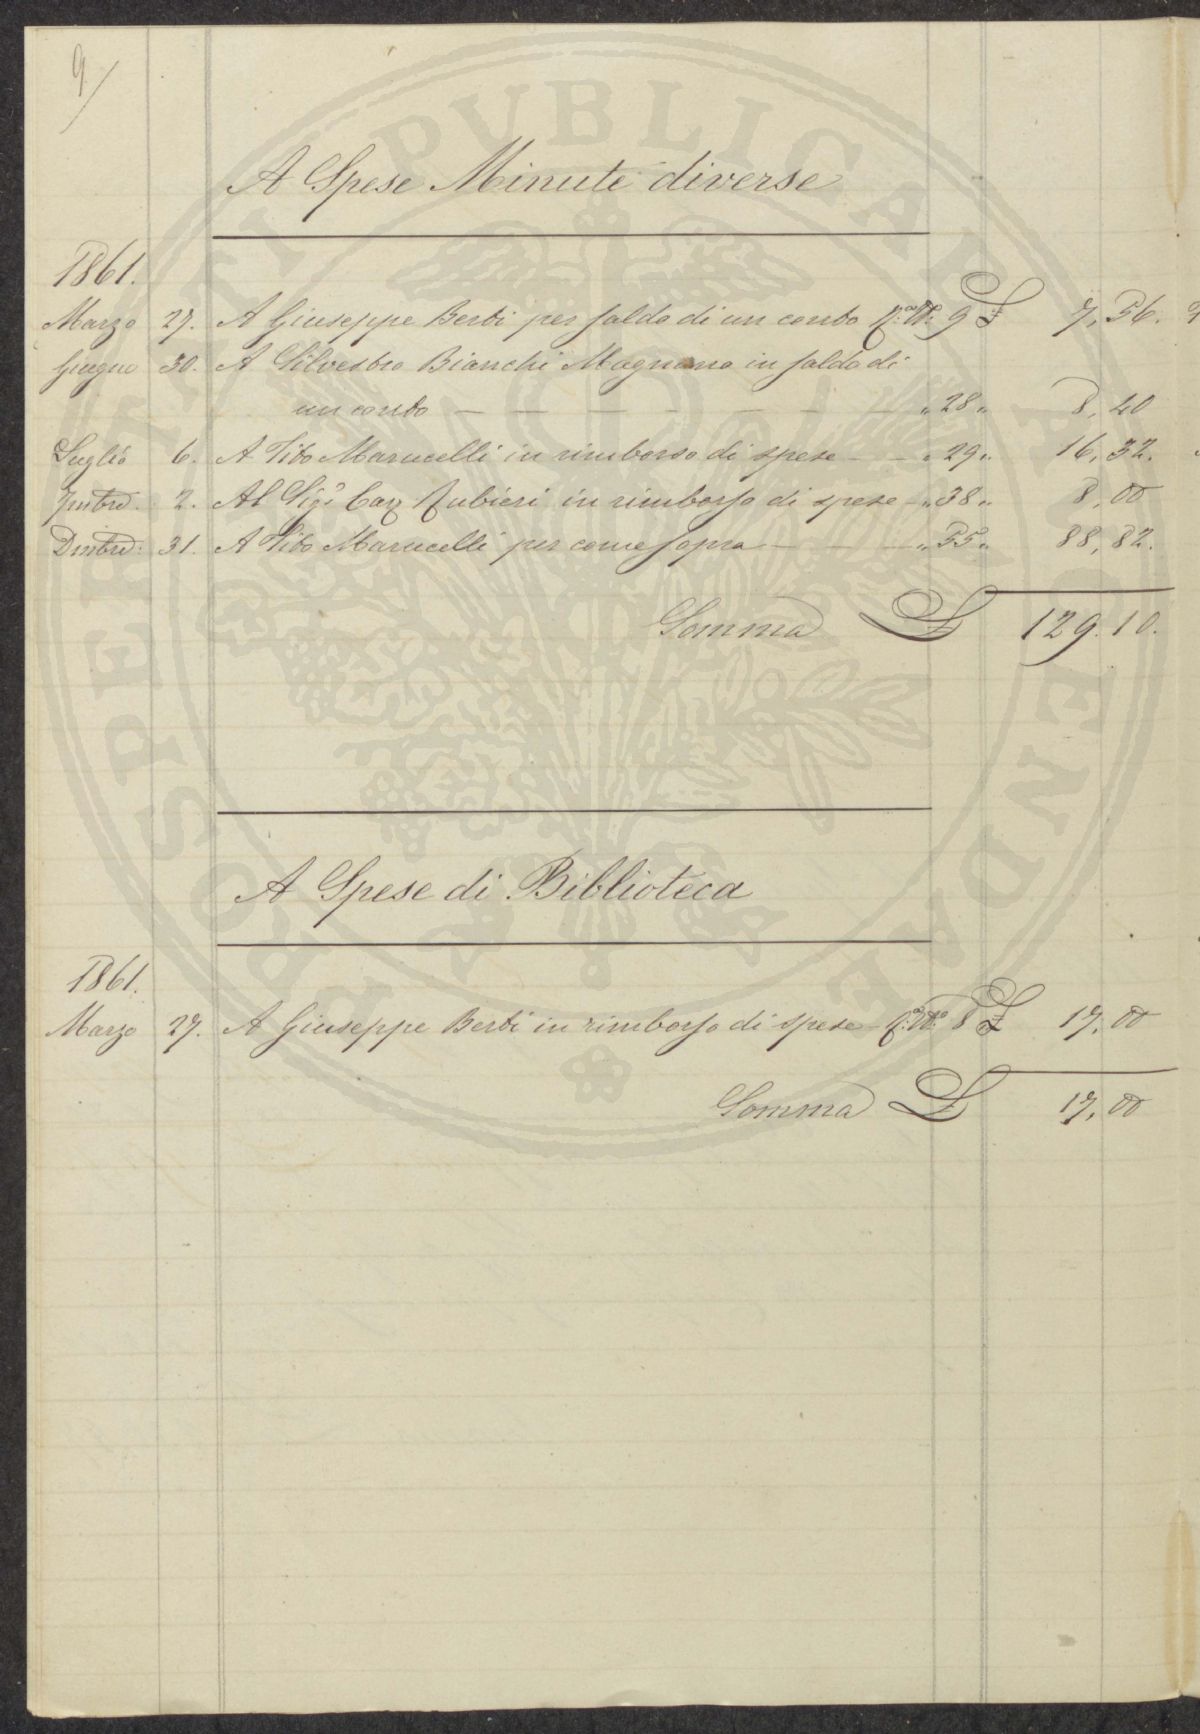 9
A Spese Minute diverse
1861.
Marzo 27. A Giuseppe Berti per saldo di un conto R.ta N.o 9 £ 7,56.
Giugno 30. A Silvestro Bianchi Magnano in saldo di
un conto — — — — — — — „ 28 „ 8,40
Luglio 6. A Tito Marucelli in rimborso di spese — — „ 29 „ 16,32.
7mbre. 2. Al Sig.r Cav. Rubieri in rimborso di spese — „ 38 „ 8,00
Dmbre: 31. A Tito Marucelli per come sopra — — — „ 55 „ 88,82.
Somma £ 129.10.
A Spese di Biblioteca
1861.
Marzo 27. A Giuseppe Berti in rimborso di spese R.ta N.o 8 £ 17,00
Somma £ 17,00
PROSPERITATI PUBLICAE AUGENDAE